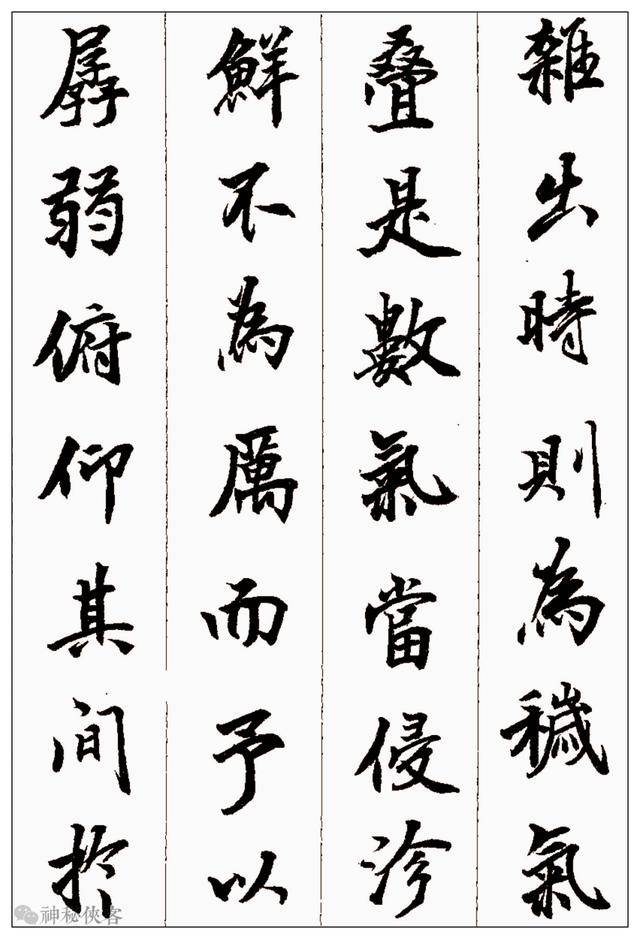 雜出時則為穢氣
疊是數氣當侵沴
鮮不為厲而予以
孱弱俯仰其間於
神秘侠客